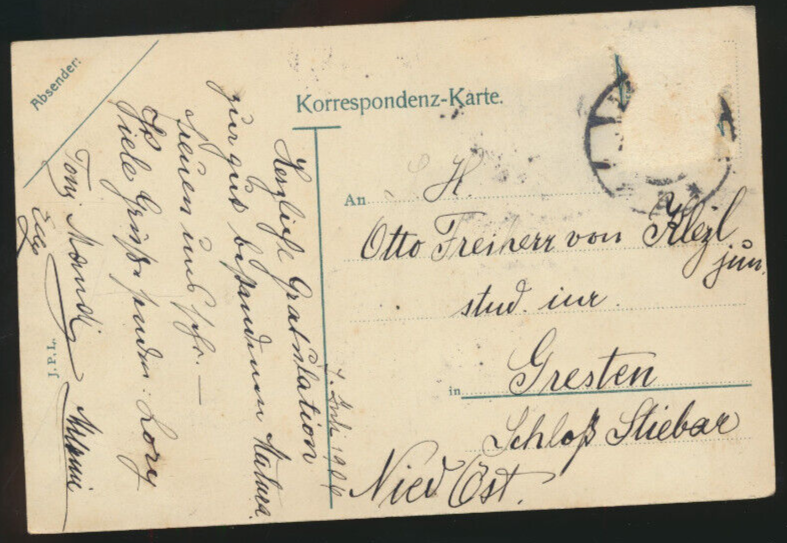 Absender:
Korrespondenz-Karte.
Herzliche Gratulation
zur gut bestandenen Matura.
freuen uns sehr. —
Viele Grüße senden: Lory
Tony Mandi Melanie
Elly
J. P. L.
An
H.
Otto Freiherr von Klezl
jun.
stud. iur.
in Gresten
Schloß Stiebar
Nied Öst.